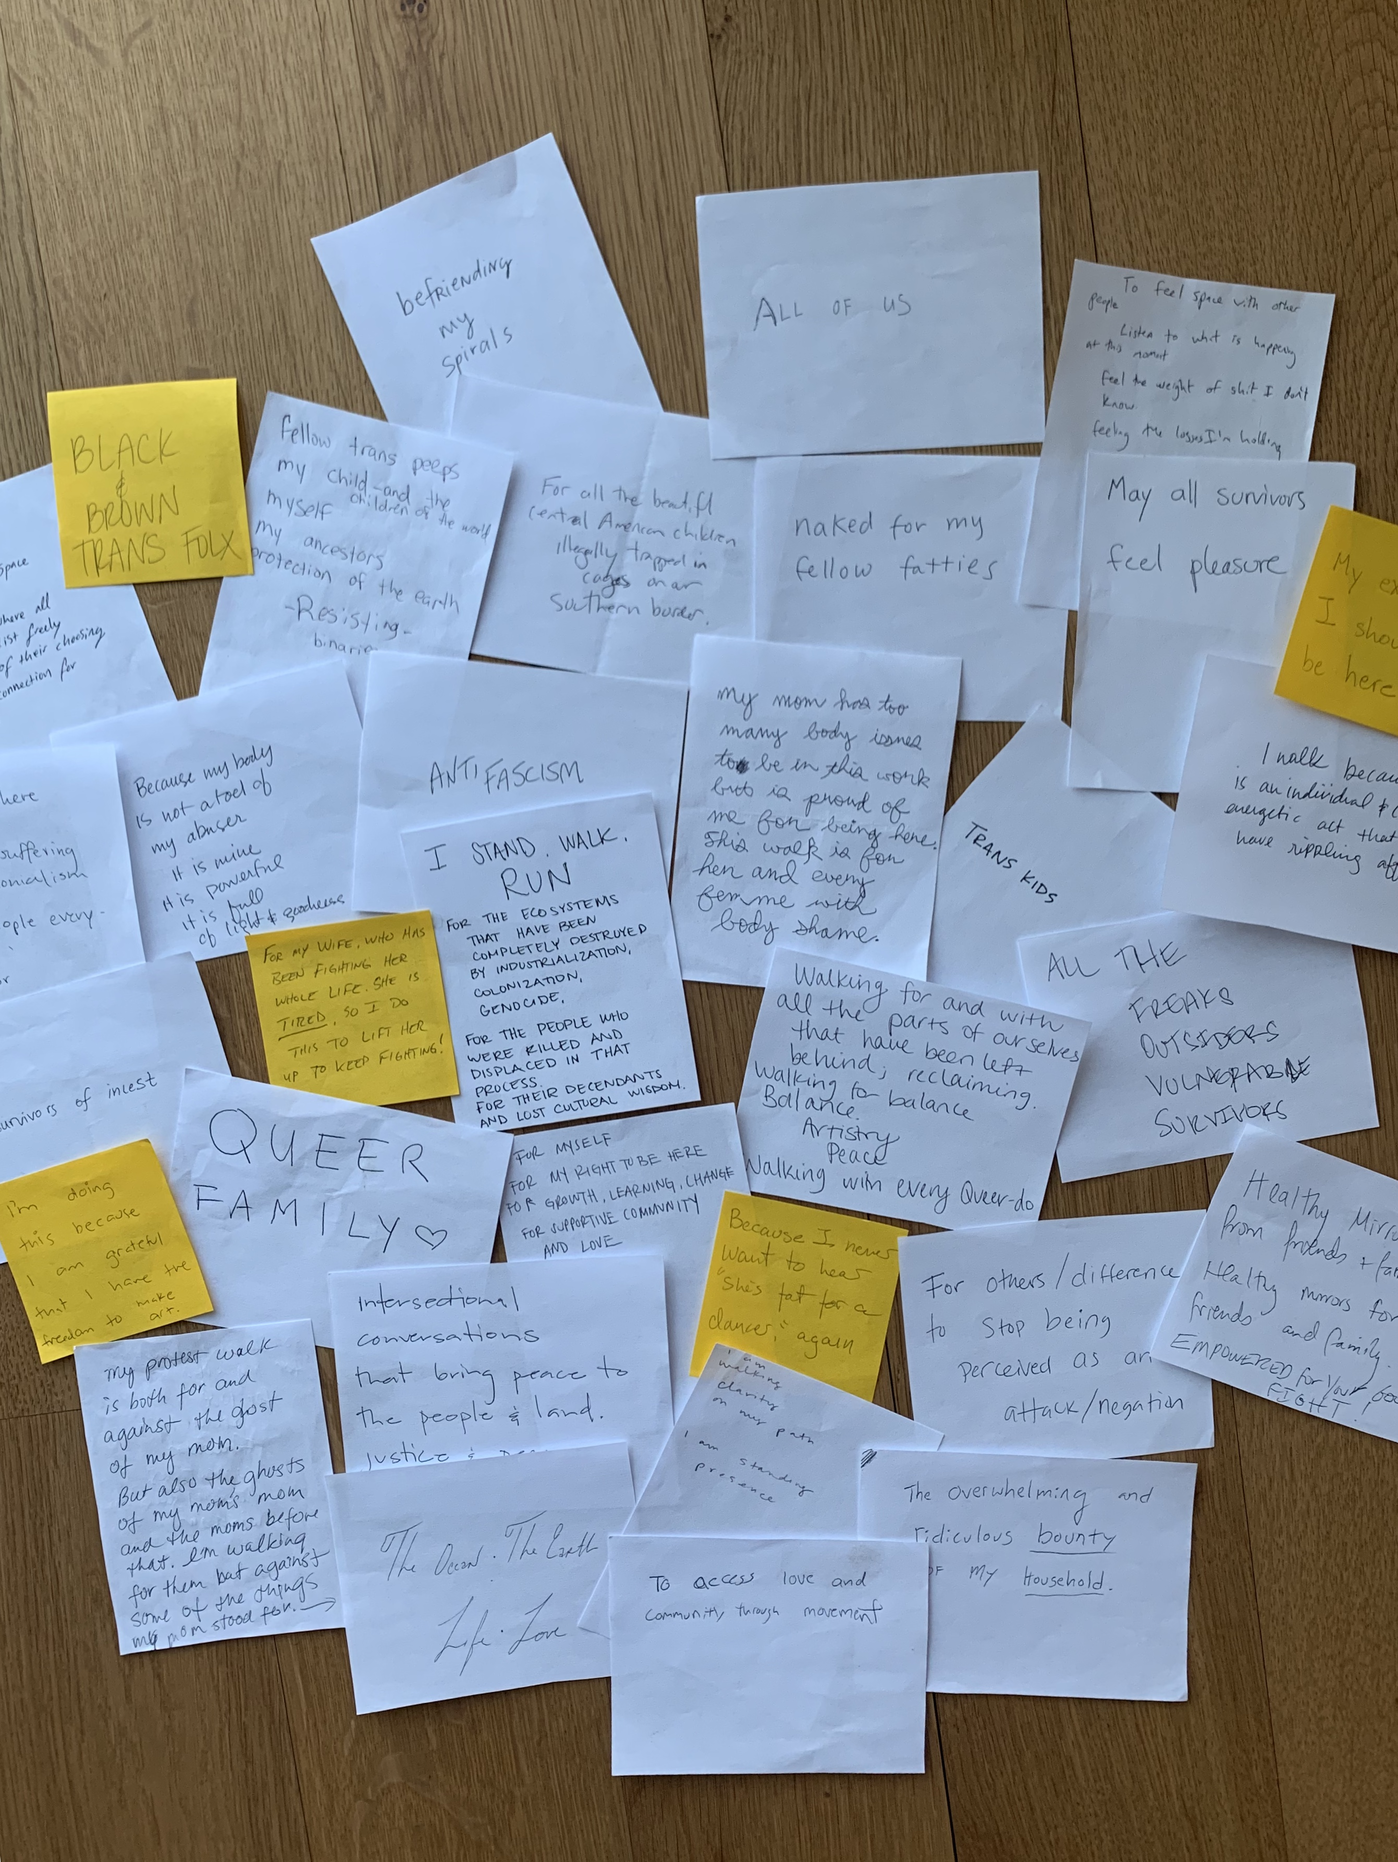 befriending
my
spirals
ALL OF US
To feel space with other
people
Listen to what is happening
at this moment
Feel the weight of shit I don't
know
feeling the losses I'm holding
BLACK
&
BROWN
TRANS FOLX
fellow trans peeps
my child and the
children of the world
myself
my ancestors
protection of the earth
-Resisting-
binaries
For all the beautifl
central American children
illegally trapped in
cages on our
Southern border.
naked for my
fellow fatties
May all survivors
feel pleasure
My ex
I shou
be here
space
where all
ist freely
of their choosing
connection for
here
suffering
onialism
ople every-
or
Because my body
is not a tool of
my abuser
it is mine
it is powerful
it is full
of light & goodness
ANTIFASCISM
my mom has too
many body issues
to be in this work
but is proud of
me for being here.
This walk is for
her and every
femme with
body shame.
TRANS KIDS
I walk becau
is an individual & c
energetic act that
have rippling aff
I STAND, WALK,
RUN
FOR THE ECOSYSTEMS
THAT HAVE BEEN
COMPLETELY DESTROYED
BY INDUSTRIALIZATION,
COLONIZATION,
GENOCIDE,
FOR THE PEOPLE WHO
WERE KILLED AND
DISPLACED IN THAT
PROCESS.
FOR THEIR DECENDANTS
AND LOST CULTURAL WISDOM.
FOR MY WIFE, WHO HAS
BEEN FIGHTING HER
WHOLE LIFE. SHE IS
TIRED, SO I DO
THIS TO LIFT HER
UP TO KEEP FIGHTING!
Walking for and with
all the parts of ourselves
that have been left
behind; reclaiming.
Walking for balance
Balance.
Artistry
Peace
Walking with every Queer-do
ALL THE
FREAKS
OUTSIDERS
VULNERABLE
SURVIVORS
survivors of incest
QUEER
FAMILY ♡
FOR MYSELF
FOR MY RIGHT TO BE HERE
FOR GROWTH, LEARNING, CHANGE
FOR SUPPORTIVE COMMUNITY
AND LOVE
I'm doing
this because
I am grateful
that I have the
freedom to make
art.
Because I never
want to hear
"she's fat for a
dancer," again
For others/difference
to stop being
perceived as an
attack/negation
Healthy Mirro
from friends + fam
Healthy mirrors for
friends and family
EMPOWERED for your
FIGHT!
Intersectional
conversations
that bring peace to
the people & land.
Justice &
my protest walk
is both for and
against the ghost
of my mom.
But also the ghosts
of my mom's mom
and the moms before
that. I'm walking
for them but against
some of the things
my mom stood for. →
I am
walking
clarity
on my path
I am standing
presence
The overwhelming and
ridiculous bounty
OF MY Household.
The Ocean. The Earth
Life. Love
To access love and
community through movement